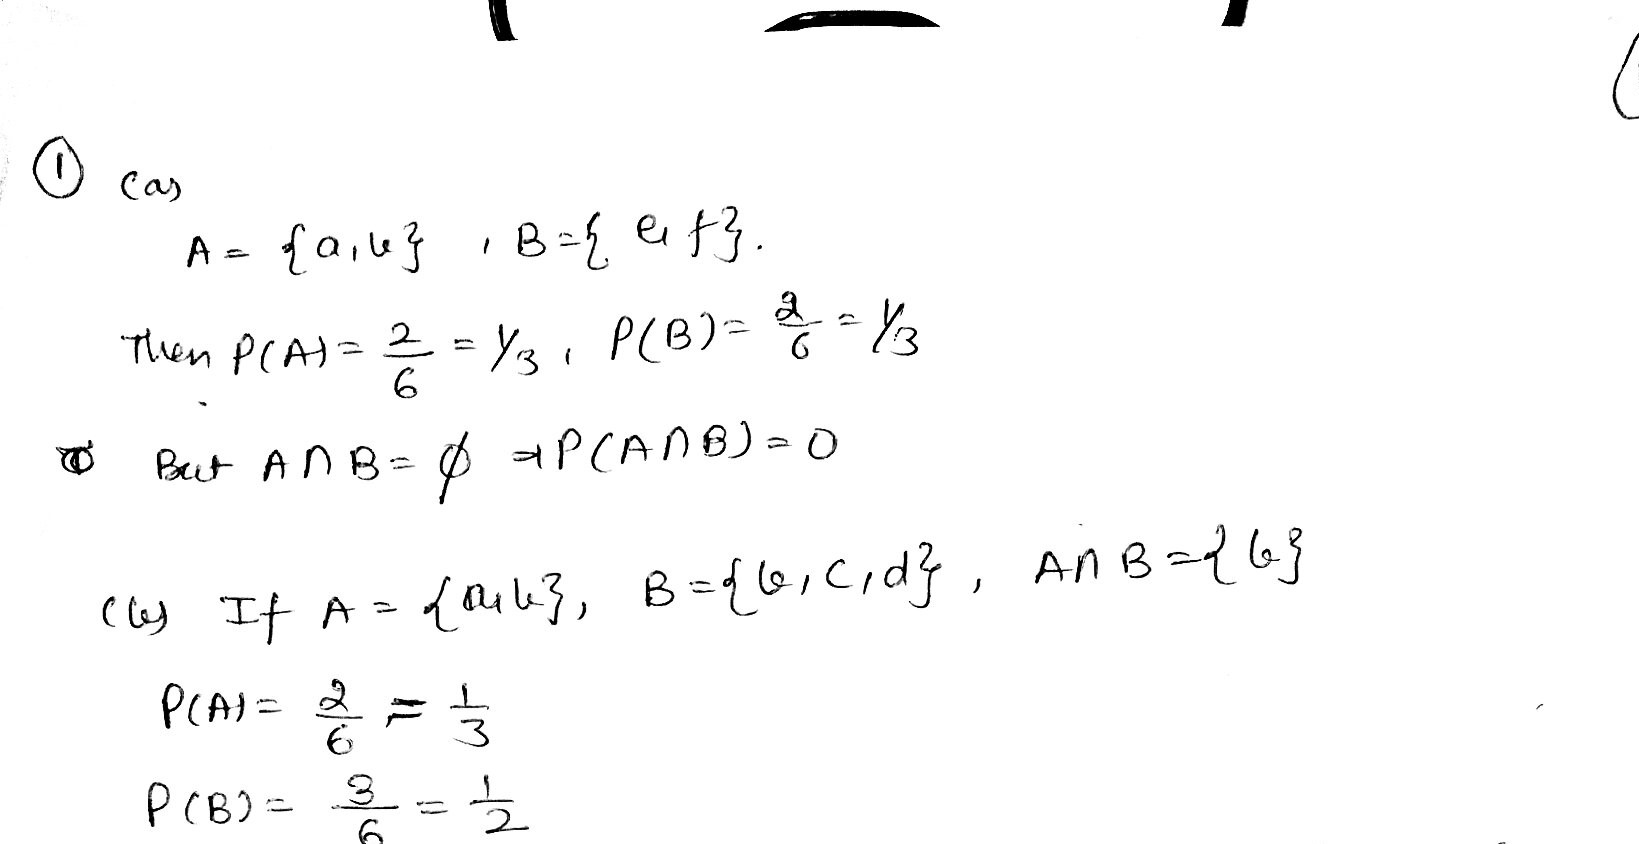 ① (a)
A = {a, b} , B = { e, f}.
Then P(A) = 2/6 = 1/3 , P(B) = 2/6 = 1/3
But A ∩ B = ϕ ⇒ P(A ∩ B) = 0
(b) If A = {a, b}, B = {b, c, d} , A ∩ B = {b}
P(A) = 2/6 = 1/3
P(B) = 3/6 = 1/2